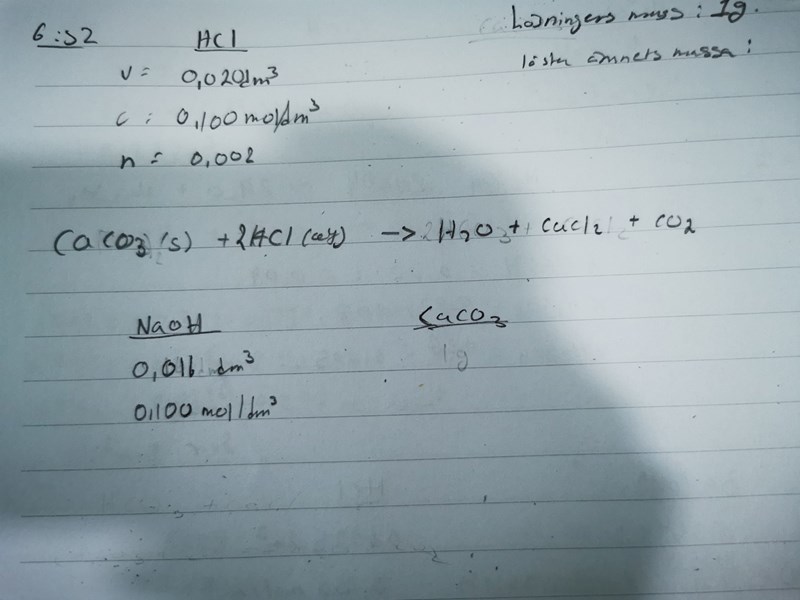 6:52
HCl
Lösningens massa: 1g.
lösta ämnets massa:
V = 0,020 dm³
c: 0,100 mol/dm³
n = 0,002
CaCO₃(s) + 2HCl (aq) -> H₂O + CaCl₂ + CO₂
NaOH
CaCO₃
0,016 dm³
1g
0,100 mol/dm³